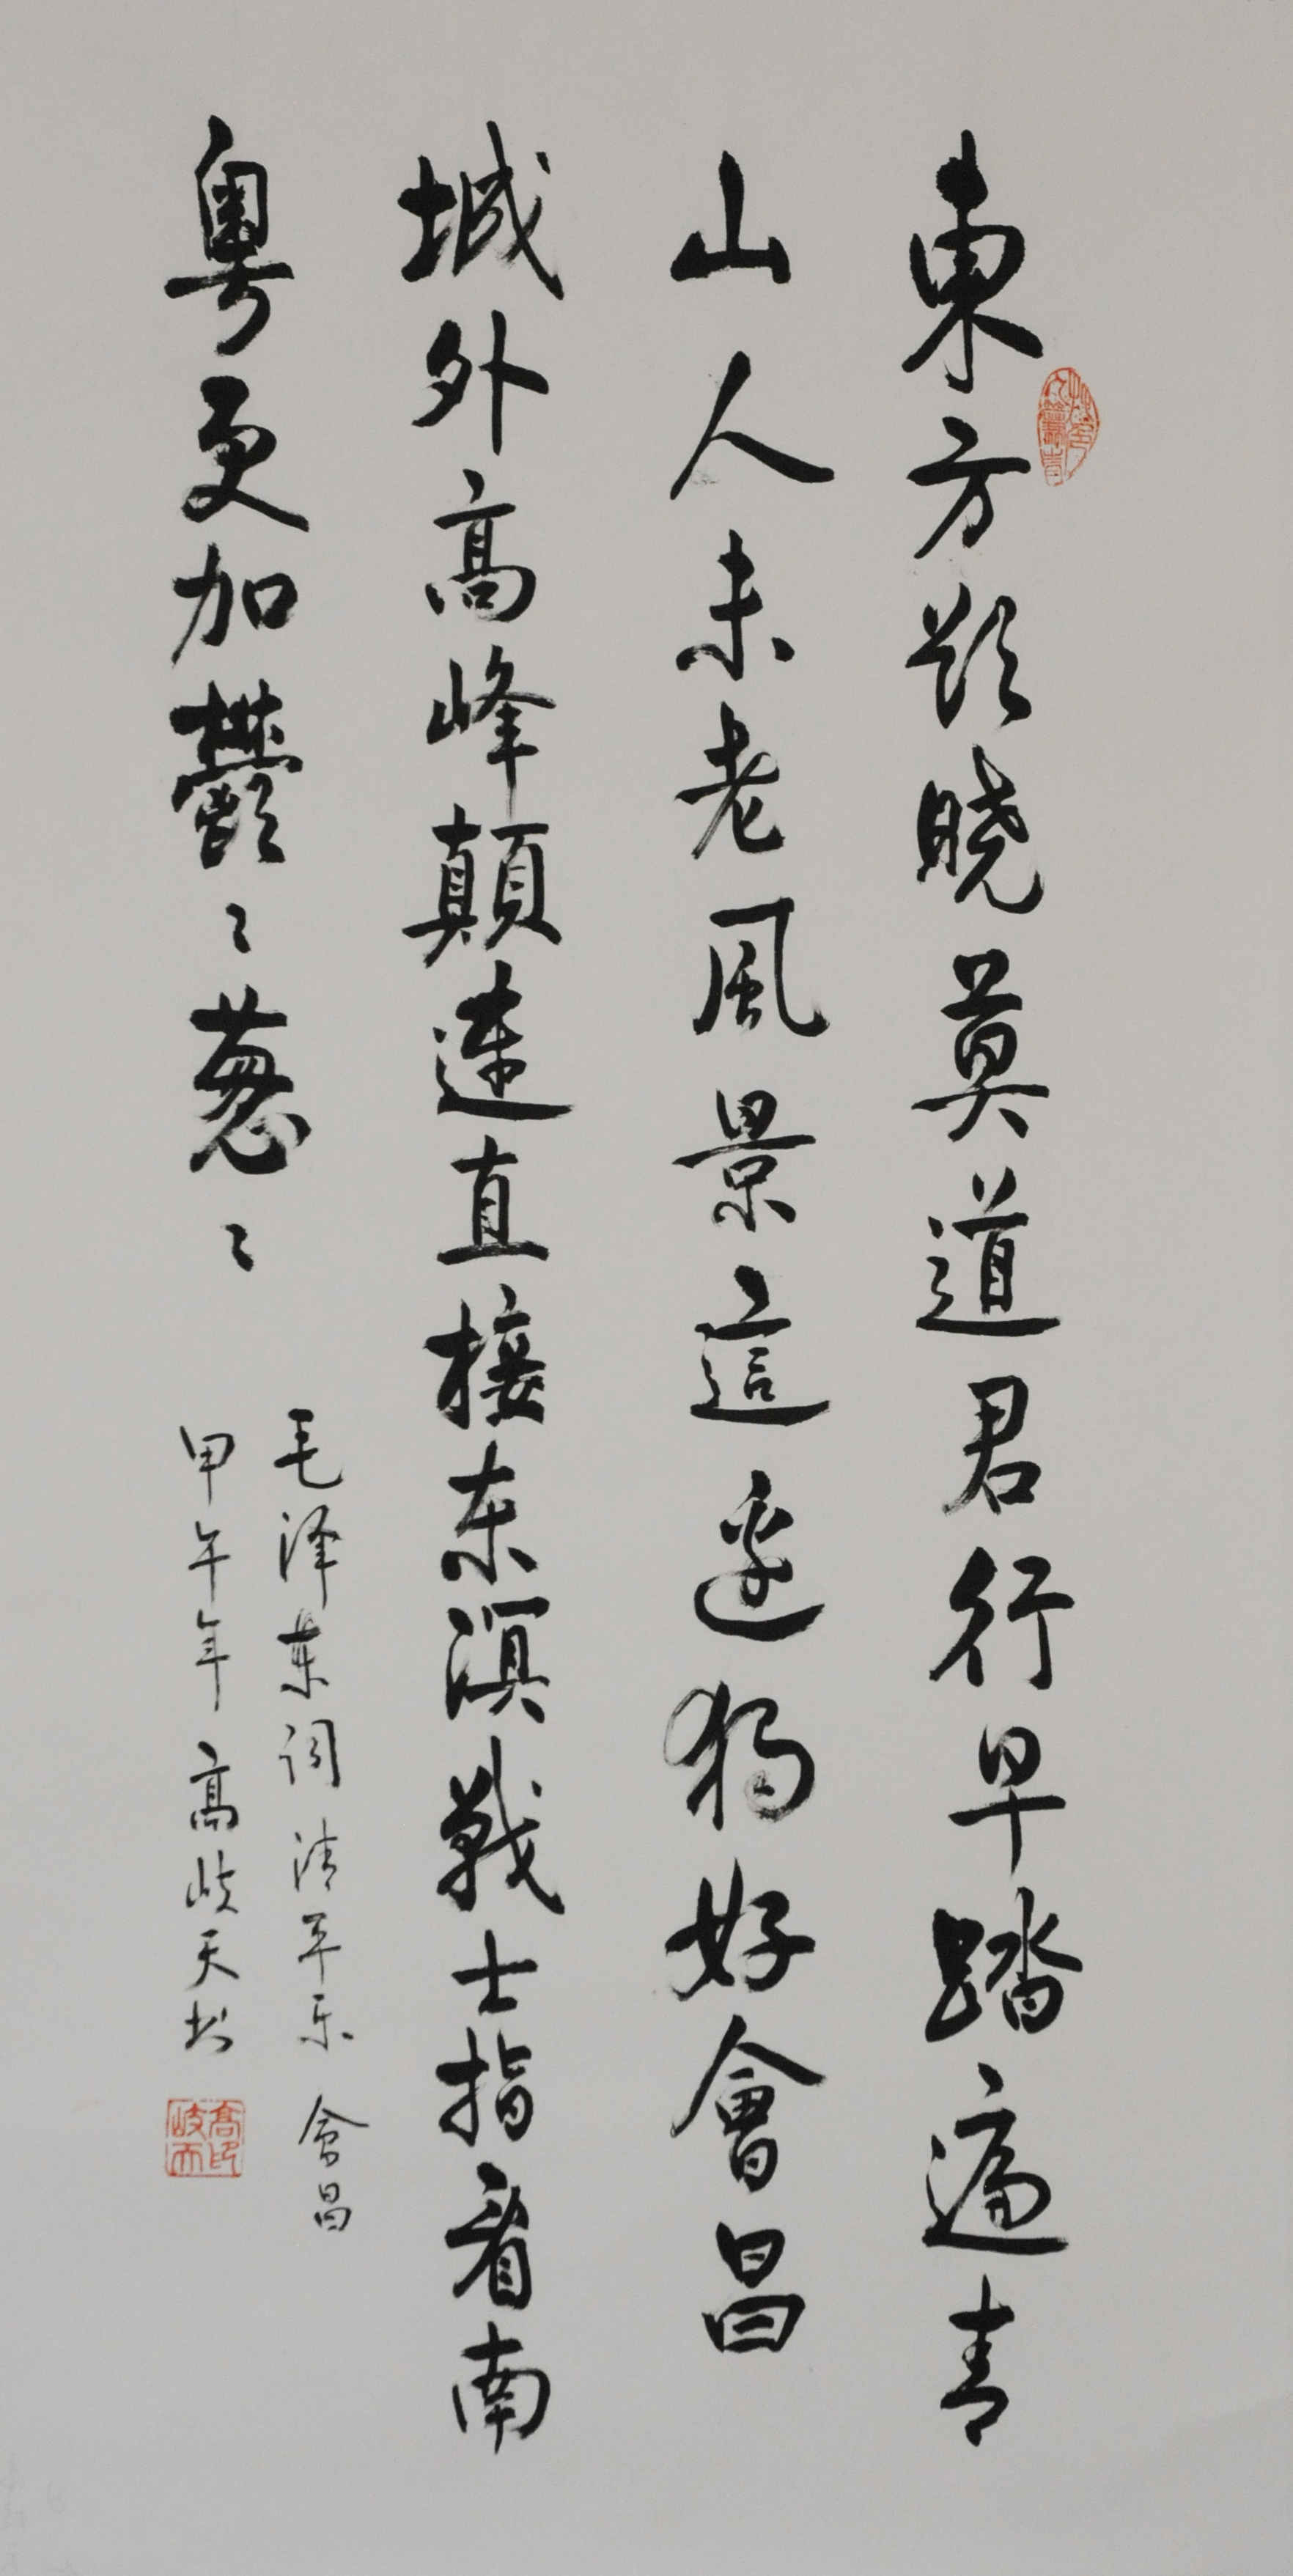 東方欲晓莫道君行早踏遍青
山人未老風景這邊獨好會昌
城外高峰顛連直接东溟戰士指看南
粤更加鬱〻葱〻
毛泽東词清平乐 會昌
甲午年高岐天书
高岐天印